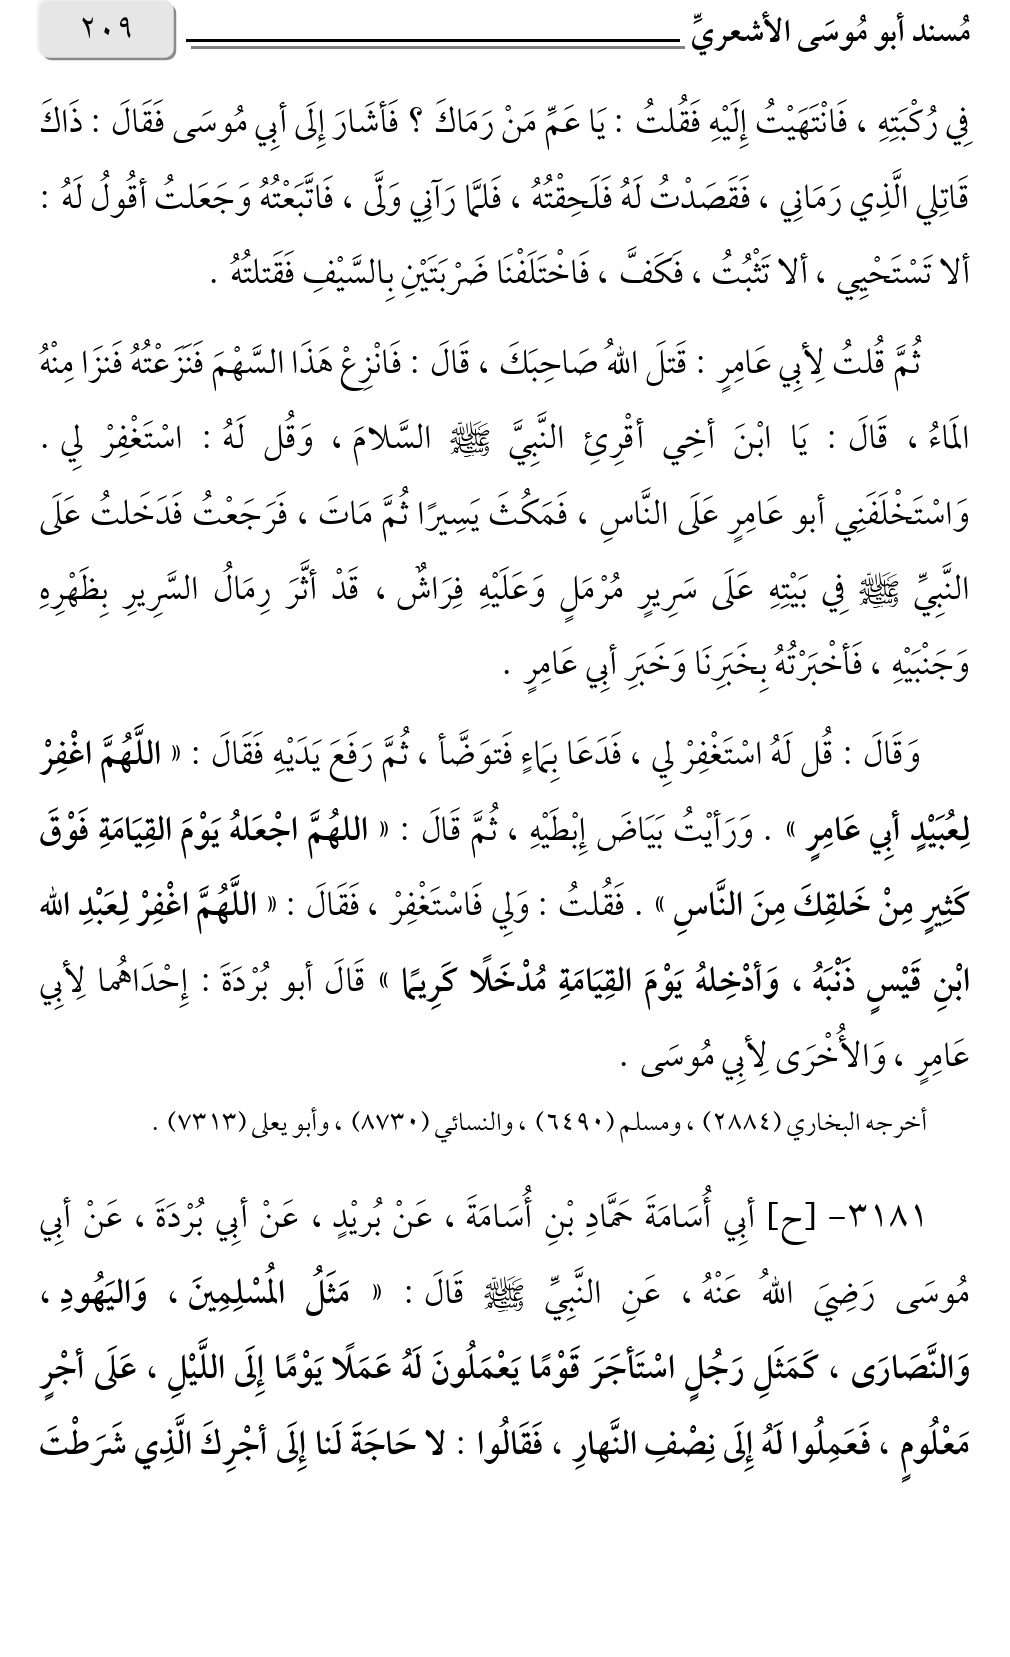 مُسند أبو مُوسَى الأشعريِّ
٢٠٩
فِي رُكْبَتِهِ ، فَانْتَهَيْتُ إِلَيْهِ فَقُلتُ : يَا عَمِّ مَنْ رَمَاكَ ؟ فَأشَارَ إِلَى أبِي مُوسَى فَقَالَ : ذَاكَ
قَاتِلِي الَّذِي رَمَانِي ، فَقَصَدْتُ لَهُ فَلَحِقْتُهُ ، فَلمَّا رَآنِي وَلَّى ، فَاتَّبَعْتُهُ وَجَعَلتُ أقُولُ لَهُ :
ألا تَسْتَحْيِي ، ألا تَثْبُتُ ، فَكَفَّ ، فَاخْتَلَفْنَا ضَرْبَتَيْنِ بِالسَّيْفِ فَقَتلتُهُ .
ثُمَّ قُلتُ لِأبِي عَامِرٍ : قَتلَ اللهُ صَاحِبَكَ ، قَالَ : فَانْزِعْ هَذَا السَّهْمَ فَنَزَعْتُهُ فَنزَا مِنْهُ
المَاءُ ، قَالَ : يَا ابْنَ أخِي أقْرِئِ النَّبِيَّ ﷺ السَّلامَ ، وَقُل لَهُ : اسْتَغْفِرْ لِي .
وَاسْتَخْلَفَنِي أبو عَامِرٍ عَلَى النَّاسِ ، فَمَكُثَ يَسِيرًا ثُمَّ مَاتَ ، فَرَجَعْتُ فَدَخَلتُ عَلَى
النَّبِيِّ ﷺ فِي بَيْتِهِ عَلَى سَرِيرٍ مُرْمَلٍ وَعَلَيْهِ فِرَاشٌ ، قَدْ أثَّرَ رِمَالُ السَّرِيرِ بِظَهْرِهِ
وَجَنْبَيْهِ ، فَأخْبَرْتُهُ بِخَبَرِنَا وَخَبَرِ أبِي عَامِرٍ .
وَقَالَ : قُل لَهُ اسْتَغْفِرْ لِي ، فَدَعَا بِمَاءٍ فَتوَضَّأ ، ثُمَّ رَفَعَ يَدَيْهِ فَقَالَ : « اللَّهُمَّ اغْفِرْ
لِعُبَيْدٍ أبِي عَامِرٍ » . وَرَأيْتُ بَيَاضَ إِبْطَيْهِ ، ثُمَّ قَالَ : « اللهُمَّ اجْعَلهُ يَوْمَ القِيَامَةِ فَوْقَ
كَثِيرٍ مِنْ خَلقِكَ مِنَ النَّاسِ » . فَقُلتُ : وَلِي فَاسْتَغْفِرْ ، فَقَالَ : « اللَّهُمَّ اغْفِرْ لِعَبْدِ الله
ابْنِ قَيْسٍ ذَنْبَهُ ، وَأدْخِلهُ يَوْمَ القِيَامَةِ مُدْخَلًا كَرِيمًا » قَالَ أبو بُرْدَةَ : إِحْدَاهُما لِأبِي
عَامِرٍ ، وَالأُخْرَى لِأبِي مُوسَى .
أخرجه البخاري (٢٨٨٤) ، ومسلم (٦٤٩٠) ، والنسائي (٨٧٣٠) ، وأبو يعلى (٧٣١٣) .
٣١٨١- [ح] أبِي أُسَامَةَ حَمَّادِ بْنِ أُسَامَةَ ، عَنْ بُرِيْدٍ ، عَنْ أبِي بُرْدَةَ ، عَنْ أبِي
مُوسَى رَضِيَ اللهُ عَنْهُ ، عَنِ النَّبِيِّ ﷺ قَالَ : « مَثَلُ المُسْلِمِينَ ، وَاليَهُودِ ،
وَالنَّصَارَى ، كَمَثَلِ رَجُلٍ اسْتَأجَرَ قَوْمًا يَعْمَلُونَ لَهُ عَمَلًا يَوْمًا إِلَى اللَّيْلِ ، عَلَى أجْرٍ
مَعْلُومٍ ، فَعَمِلُوا لَهُ إِلَى نِصْفِ النَّهارِ ، فَقَالُوا : لا حَاجَةَ لَنا إِلَى أجْرِكَ الَّذِي شَرَطْتَ